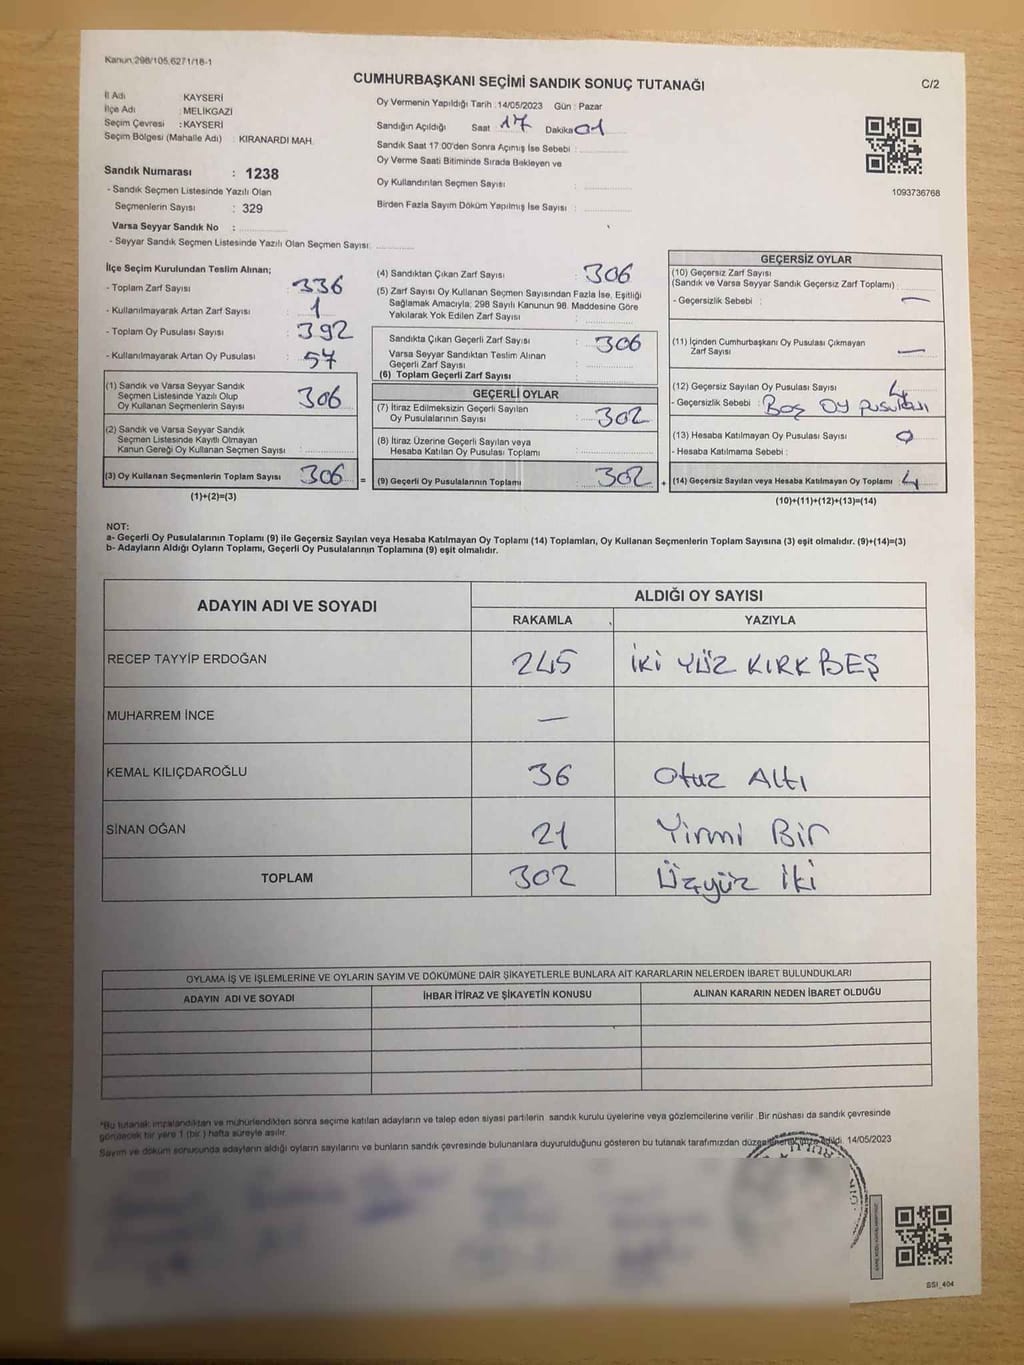 Kanun,298/105,6271/18-1
CUMHURBAŞKANI SEÇİMİ SANDIK SONUÇ TUTANAĞI
C/2
İl Adı KAYSERİ
İlçe Adı : MELİKGAZİ
Seçim Çevresi : KAYSERİ
Seçim Bölgesi (Mahalle Adı) : KIRANARDI MAH.
Oy Vermenin Yapıldığı Tarih :14/05/2023 Gün : Pazar
Sandığın Açıldığı Saat 17 Dakika 01
Sandık Saat 17:00'den Sonra Açımış İse Sebebi :
Oy Verme Saati Bitiminde Sırada Bekleyen ve
Oy Kullandırılan Seçmen Sayısı :
Birden Fazla Sayım Döküm Yapılmış İse Sayısı :
1093736768
Sandık Numarası : 1238
- Sandık Seçmen Listesinde Yazılı Olan
Seçmenlerin Sayısı : 329
Varsa Seyyar Sandık No :
- Seyyar Sandık Seçmen Listesinde Yazılı Olan Seçmen Sayısı:
İlçe Seçim Kurulundan Teslim Alınan;
- Toplam Zarf Sayısı : 336
- Kullanılmayarak Artan Zarf Sayısı : 1
- Toplam Oy Pusulası Sayısı : 392
- Kullanılmayarak Artan Oy Pusulası : 57
(1) Sandık ve Varsa Seyyar Sandık
Seçmen Listesinde Yazılı Olup
Oy Kullanan Seçmenlerin Sayısı : 306
(2) Sandık ve Varsa Seyyar Sandık
Seçmen Listesinde Kayıtlı Olmayan
Kanun Gereği Oy Kullanan Seçmen Sayısı :
(3) Oy Kullanan Seçmenlerin Toplam Sayısı : 306 =
(1)+(2)=(3)
(4) Sandıktan Çıkan Zarf Sayısı : 306
(5) Zarf Sayısı Oy Kullanan Seçmen Sayısından Fazla İse, Eşitliği
Sağlamak Amacıyla; 298 Sayılı Kanunun 98. Maddesine Göre
Yakılarak Yok Edilen Zarf Sayısı :
Sandıkta Çıkan Geçerli Zarf Sayısı : 306
Varsa Seyyar Sandıktan Teslim Alınan
Geçerli Zarf Sayısı :
(6) Toplam Geçerli Zarf Sayısı :
GEÇERLİ OYLAR
(7) İtiraz Edilmeksizin Geçerli Sayılan
Oy Pusulalarının Sayısı : 302
(8) İtiraz Üzerine Geçerli Sayılan veya
Hesaba Katılan Oy Pusulası Toplamı :
(9) Geçerli Oy Pusulalarının Toplamı : 302 +
GEÇERSİZ OYLAR
(10) Geçersiz Zarf Sayısı
(Sandık ve Varsa Seyyar Sandık Geçersiz Zarf Toplamı) :
- Geçersizlik Sebebi : —
(11) İçinden Cumhurbaşkanı Oy Pusulası Çıkmayan
Zarf Sayısı : —
(12) Geçersiz Sayılan Oy Pusulası Sayısı : 4
- Geçersizlik Sebebi : Boş OY pusulası
(13) Hesaba Katılmayan Oy Pusulası Sayısı : 0
- Hesaba Katılmama Sebebi :
(14) Geçersiz Sayılan veya Hesaba Katılmayan Oy Toplamı : 4
(10)+(11)+(12)+(13)=(14)
NOT:
a- Geçerli Oy Pusulalarının Toplamı (9) ile Geçersiz Sayılan veya Hesaba Katılmayan Oy Toplamı (14) Toplamları, Oy Kullanan Seçmenlerin Toplam Sayısına (3) eşit olmalıdır. (9)+(14)=(3)
b- Adayların Aldığı Oyların Toplamı, Geçerli Oy Pusulalarının Toplamına (9) eşit olmalıdır.
ADAYIN ADI VE SOYADI
ALDIĞI OY SAYISI
RAKAMLA YAZIYLA
RECEP TAYYİP ERDOĞAN 245 İKİ YÜZ KIRK BEŞ
MUHARREM İNCE —
KEMAL KILIÇDAROĞLU 36 Otuz Altı
SİNAN OĞAN 21 Yirmi Bir
TOPLAM 302 Üçyüz İki
OYLAMA İŞ VE İŞLEMLERİNE VE OYLARIN SAYIM VE DÖKÜMÜNE DAİR ŞİKAYETLERLE BUNLARA AİT KARARLARIN NELERDEN İBARET BULUNDUKLARI
ADAYIN ADI VE SOYADI İHBAR İTİRAZ VE ŞİKAYETİN KONUSU ALINAN KARARIN NEDEN İBARET OLDUĞU
*Bu tutanak imzalandıktan ve mühürlendikten sonra seçime katılan adayların ve talep eden siyasi partilerin sandık kurulu üyelerine veya gözlemcilerine verilir .Bir nüshası da sandık çevresinde
görülecek bir yere 1 (bir ) hafta süreyle asılır.
Sayım ve döküm sonucunda adayların aldığı oyların sayılarını ve bunların sandık çevresinde bulunanlara duyurulduğunu gösteren bu tutanak tarafımızdan 14/05/2023
SSI_404